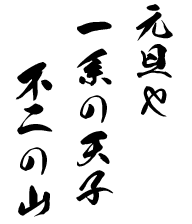 元旦や
一系の天子
不二の山